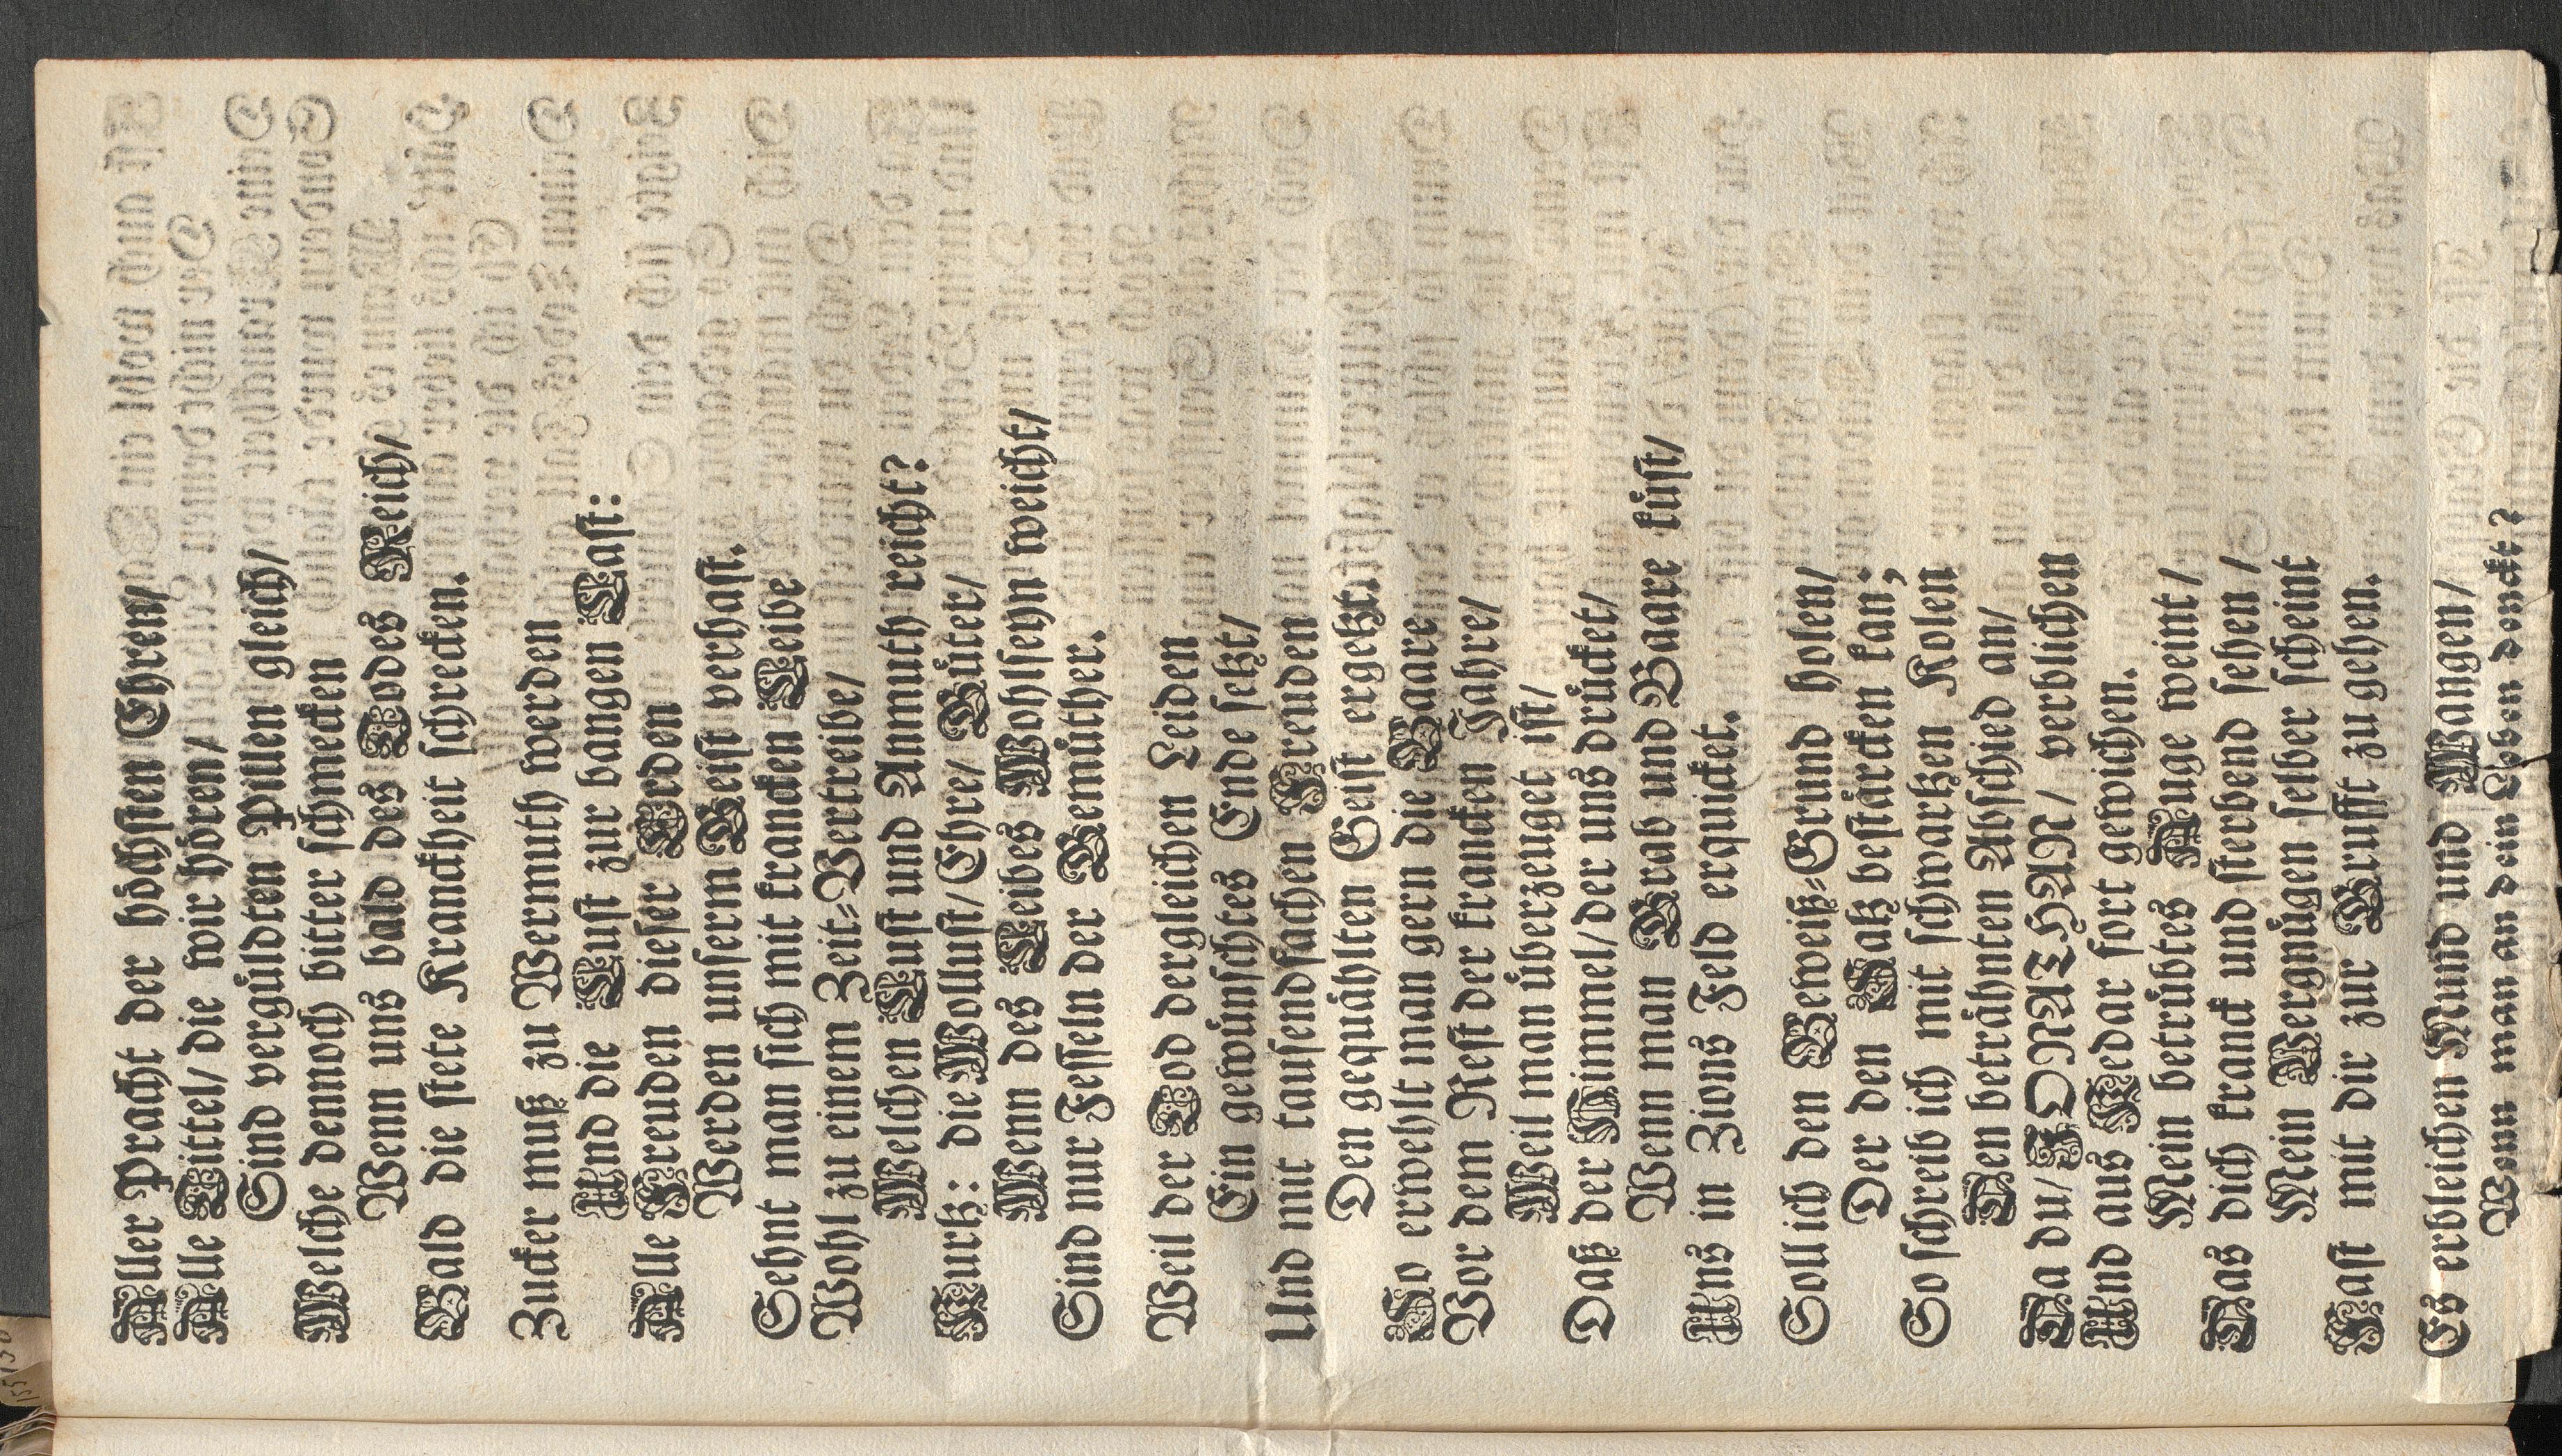 Aller Pracht der höchsten Ehren/
Alle Tittel/ die wir hören/
Sind vergüldten Pillen gleich/
Welche dennoch bitter schmecken
Wenn uns bald des Todes Reich/
Bald die stete Kranckheit schrecken.
Zucker muß zu Wermuth werden
Und die Lust zur bangen Last:
Alle Freuden dieser Erden
Werden unserm Geist verhast.
Sehnt man sich mit krancken Leibe
Wohl zu einem Zeit-Vertreibe/
Welchen Lust und Anmuth reicht?
Kurtz: die Wollust/ Ehre/ Güter/
Wenn des Leibes Wohlseyn weicht/
Sind nur Fesseln der Gemüther.
Weil der Tod dergleichen Leiden
Ein gewünschtes Ende setzt/
Und mit tausendfachen Freuden
Den gequählten Geist ergetzt.
So erwehlt man gern die Baare
Vor dem Rest der krancken Jahre/
Weil man überzeuget ist/
Daß der Himmel/ der uns drücket/
Wenn man Grab und Baare küst/
Uns in Zions Feld erquicket.
Soll ich den Beweiß-Grund holen/
Der den Satz bestärcken kan;
So schreib ich mit schwartzen Kolen
Den beträhnten Abschied an/
Da du/ JONATHAN/ verblichen
Und aus Kedar fort gewichen.
Mein betrübtes Auge weint/
Das dich kranck und sterbend sehen/
Mein Vergnügen selber scheint
Fast mit dir zur Grufft zu gehen.
Es erbleichen Mund und Wangen/
Wenn man an dein Leben denckt?